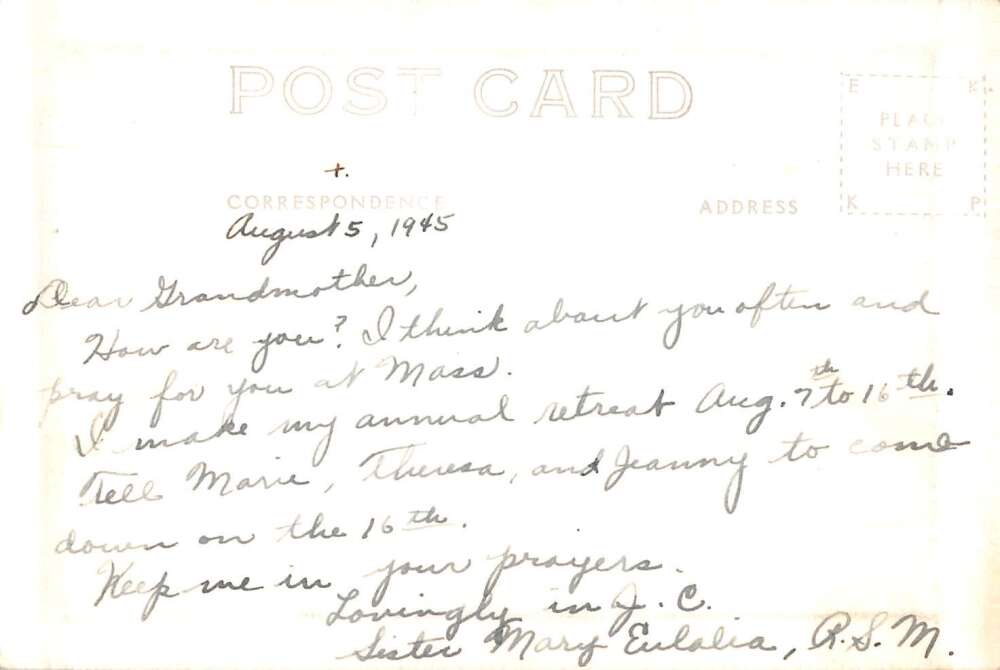 POST CARD
E K
PLACE
STAMP
HERE
K P
+.
CORRESPONDENCE
ADDRESS
August 5, 1945
Dear Grandmother,
How are you? I think about you often and
pray for you at Mass.
I make my annual retreat Aug. 7th to 16th.
Tell Marie, Theresa, and Jeanny to come
down on the 16th.
Keep me in your prayers.
Lovingly in J. C.
Sister Mary Eulalia, R.S.M.